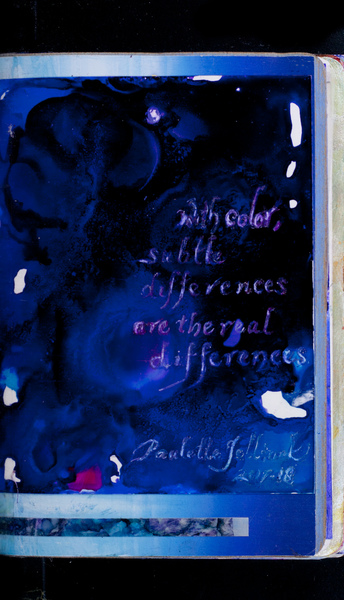 with color,
subtle
differences
are the real
differences
Paulette